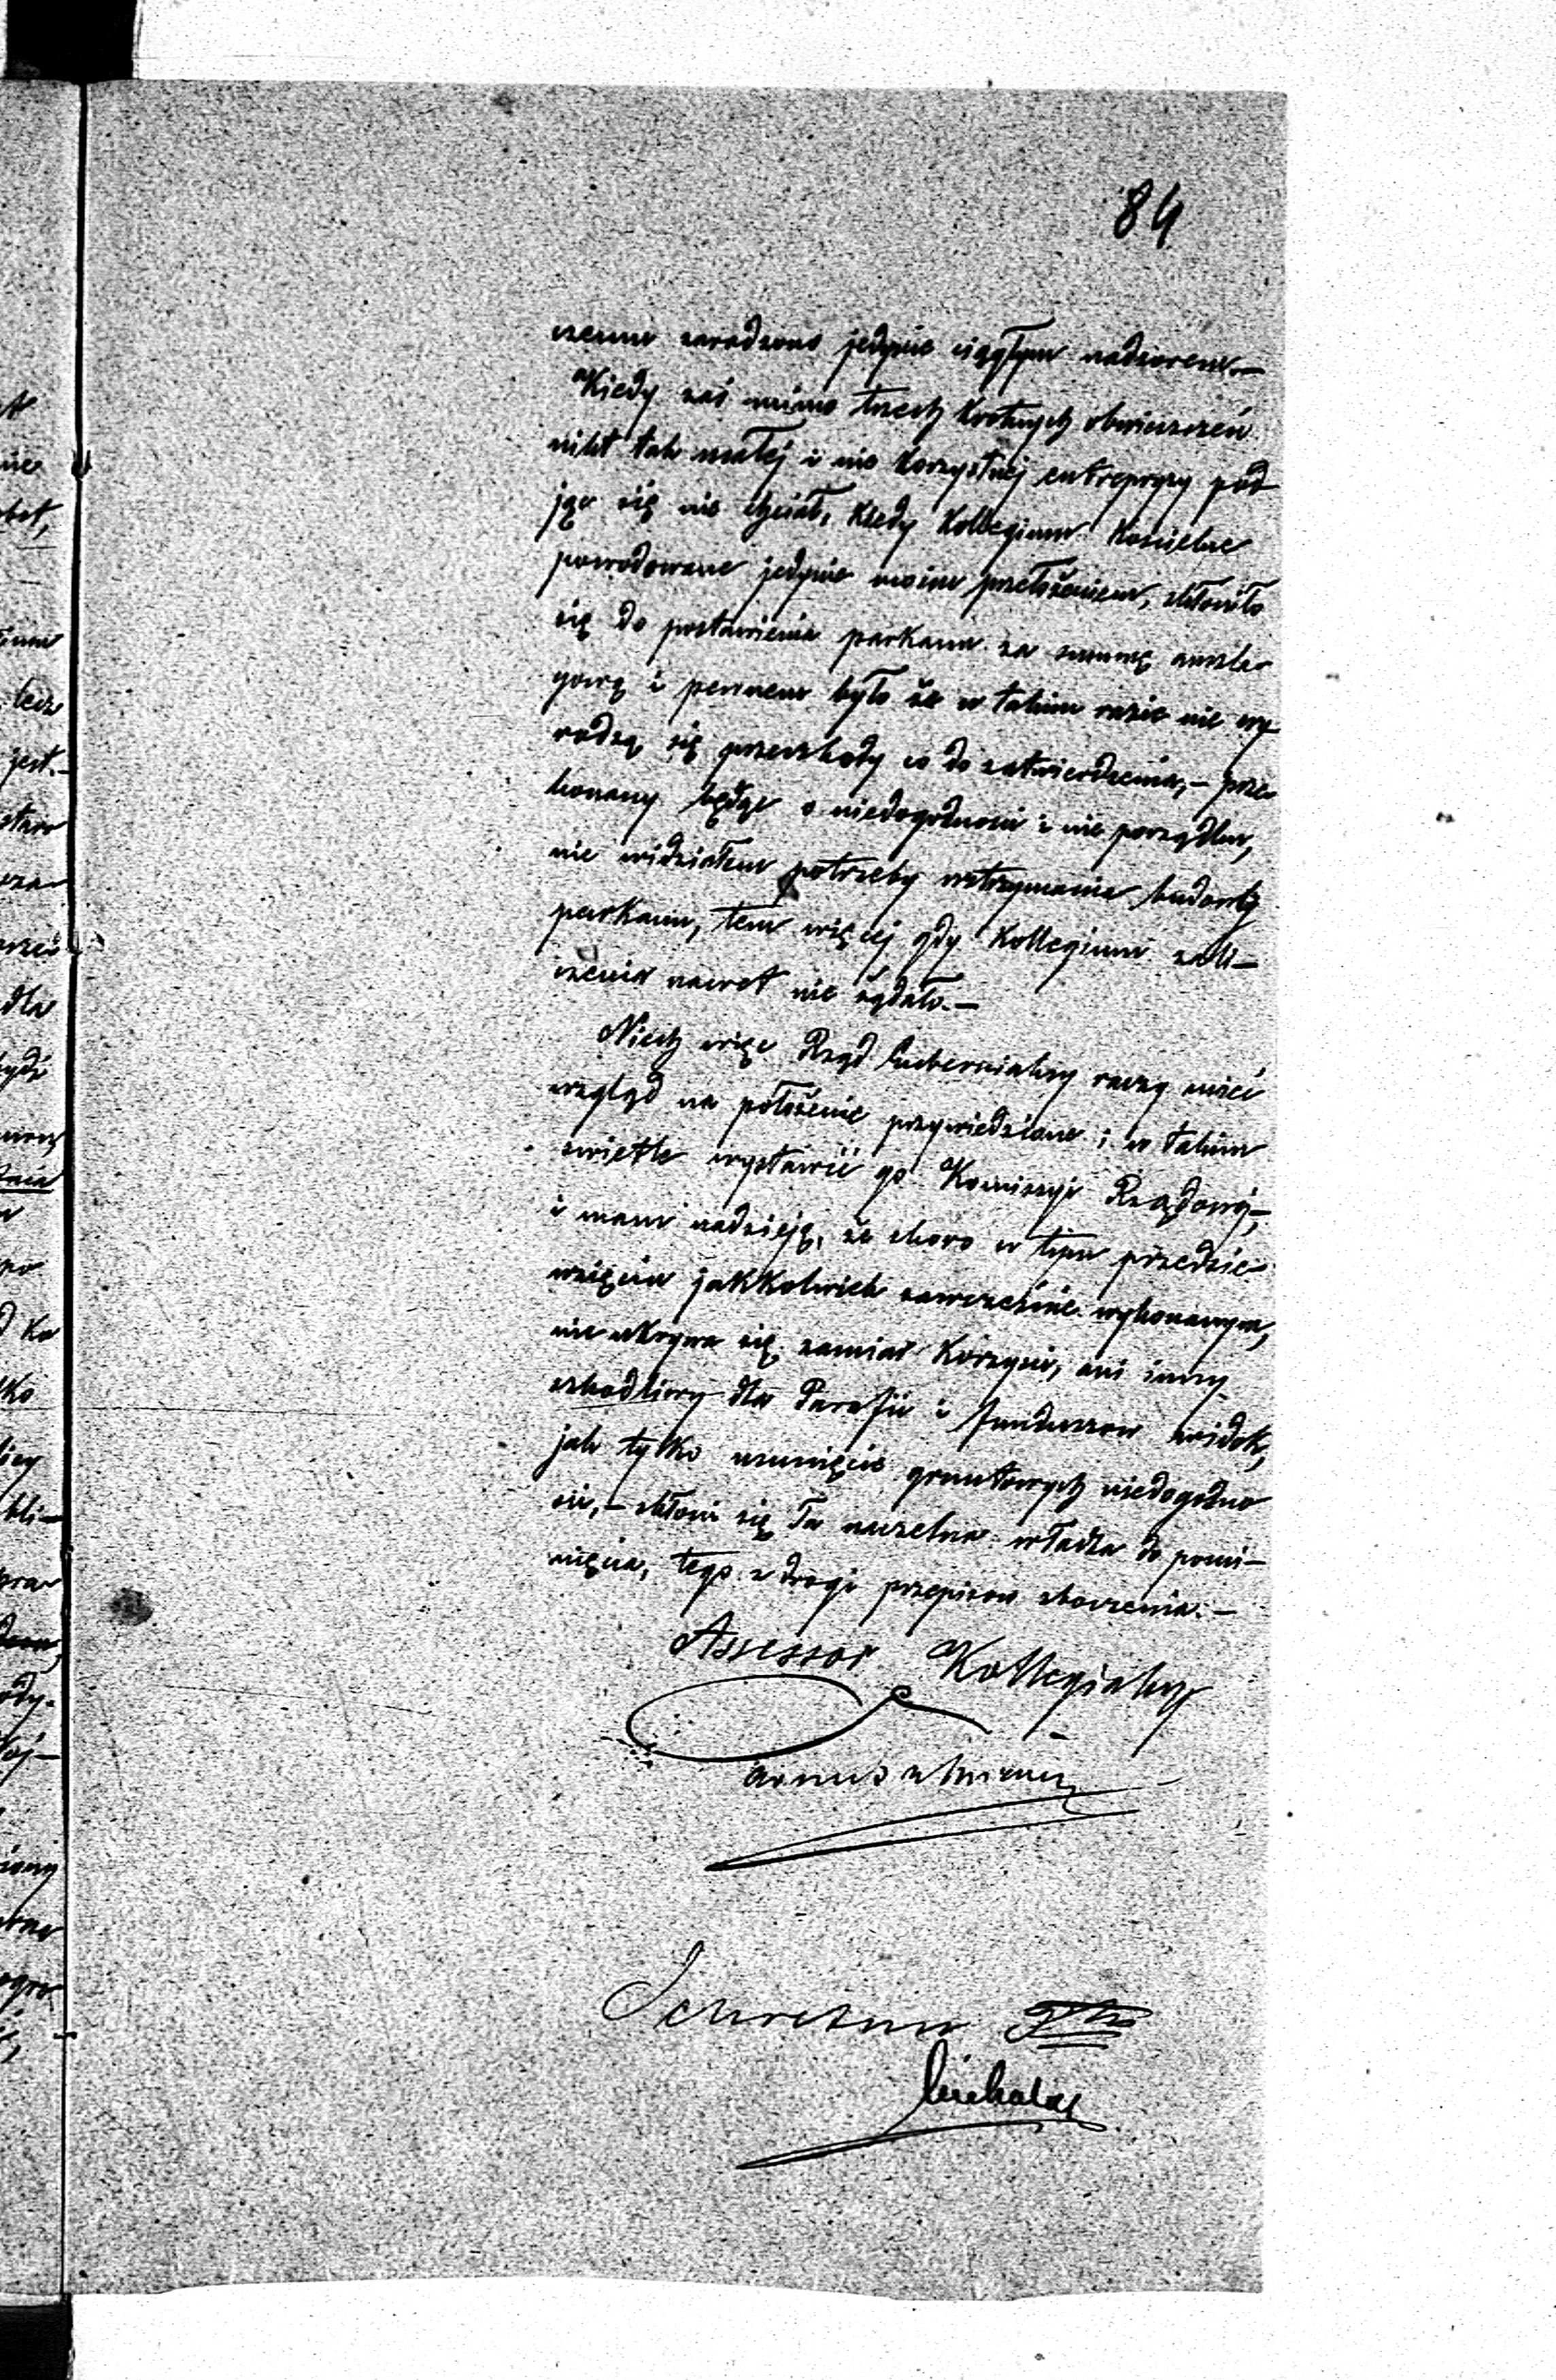 84
czemu zaradzono jedynie ciągłym nadzorem.—
Kiedy zaś mimo trzech krotnych obwieszczeń
nikt tak małej i nie korzystnej entrepryzy pod
jąc się nie chciał, kiedy Kollegium Kościelne
powodowane jedynie moim przełożeniem, skłoniło
się do postawienia parkanu za summę anszla
gową i pewnem było że w takim razie nie wy
rodzą się przeszkody co do zatwierdzenia,— prze
konany będąc o niedogodności i nie porządku,
nie widziałem potrzeby wstrzymania budowy
parkanu, tem więcej gdy Kollegium zali—
czenia nawet nie żądało.—
Niech więc Rząd Gubernialny raczy mieć
wzgląd na położenie przywiedzione i w takim
świetle wystawić go Kommissyi Rządowej,—
i mam nadzieję, że skoro w tym przedsię
wzięciu jakkolwiek zawcześnie wykonanym,
nie ukrywa się zamiar korzyści, ani inny
szkodliwy dla Parafii i funduszow widok,
jak tylko usunięcie gruntowych niedogodno
ści,— skłoni się Ta naczelna władza do pomi—
nięcia, tego z drogi przepisow zboczenia.—
Assessor Kollegialny